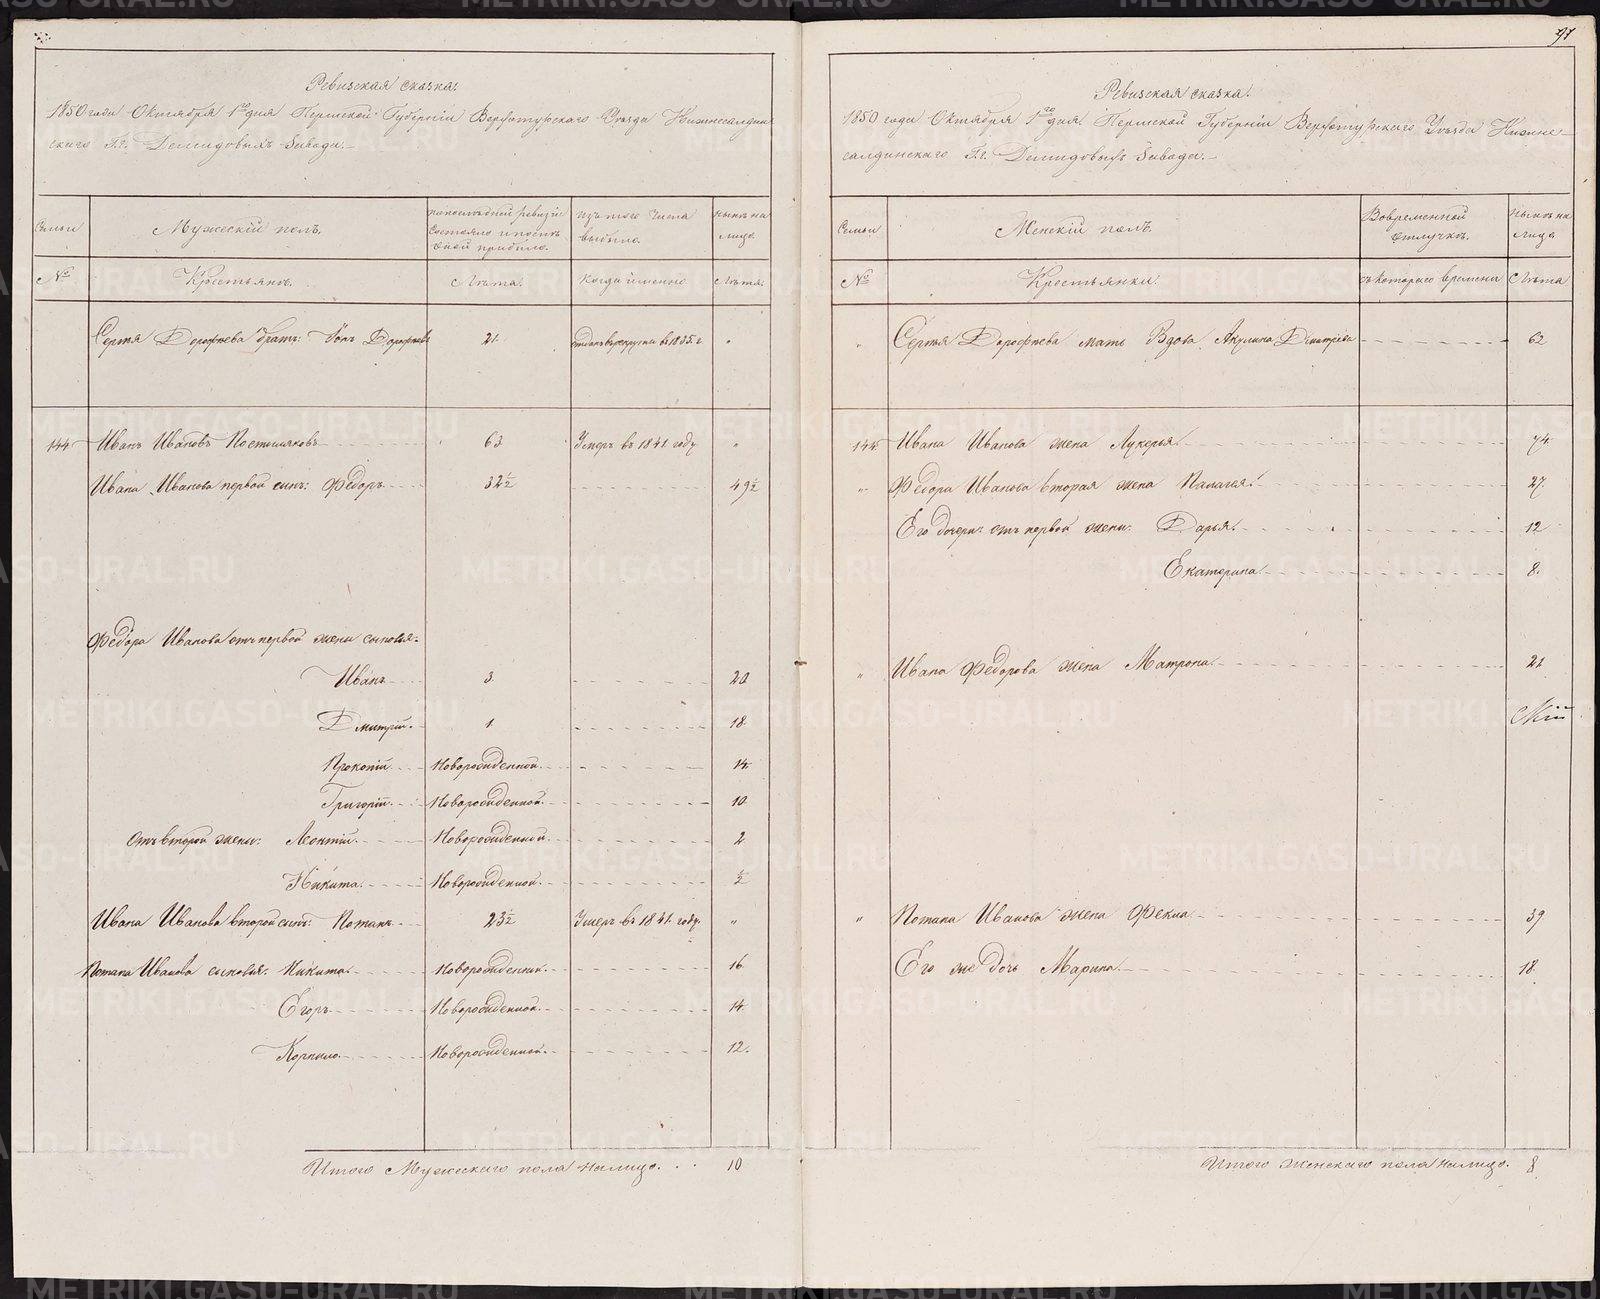 97
Ревизская сказка.
1850 года Октября 1го дня Пермской Губерніи Верхотурскаго Уѣзда Нижнесалдин
скаго Г.г. Демидовыхъ Завода.
Семьи
Мужескій полъ.
По последней ревизіи состояло и послѣ оной прибыло.
Изъ того числа выбыло.
Нынѣ на лицо.
№
Крестьянъ.
Лѣта.
Когда именно
Лѣта.
Сергѣя Дорофѣева братъ: Дорофѣевъ 21. отданъ въ рекруты въ 1835 г. "
144 Иванъ Ивановъ Постыляковъ 63 Умеръ въ 1841 году "
Ивана Иванова первой сынъ: Федоръ 32½ 49½
Федора Иванова отъ первой жены сыновья:
Иванъ 3. 20
Дмитрій. 1. 18.
Прокопій Новорожденной. 14.
Григорій. Новорожденной. 10.
Отъ второй жены: Леонтій. Новорожденной. 2
Никита. Новорожденной. ½
Ивана Иванова второй сынъ: Потапъ 23½ Умеръ въ 1841. году. "
Потапа Иванова сыновья: Никита. Новорожденной. 16.
Егоръ. Новорожденной. 14.
Корнило. Новорожденной. 12.
Итого Мужескаго пола налицо. . . 10
Ревизская сказка.
1850 года Октября 1го дня. Пермской Губерніи Верхотурскаго Уѣзда Нижне-
салдинскаго Г.г. Демидовыхъ Завода.
Семьи
Женскій полъ.
Во временной отлучкѣ.
Нынѣ на лицо.
№
Крестьянки.
Съ котораго времени
Лѣта
" Сергѣя Дорофѣева мать Вдова Акулина Дмитріева 62
144. Ивана Иванова жена Лукерья. 74.
" Федора Иванова вторая жена Палагея. 27.
Его дочери отъ первой жены: Дарья. 12
Екатерина. 8.
" Ивана Федорова жена Матрона. 21
" Потапа Иванова жена Фекла. 39
Его же дочь Марина. 18.
Итого женскаго пола налицо. 8
METRIKI.GASO-URAL.RU